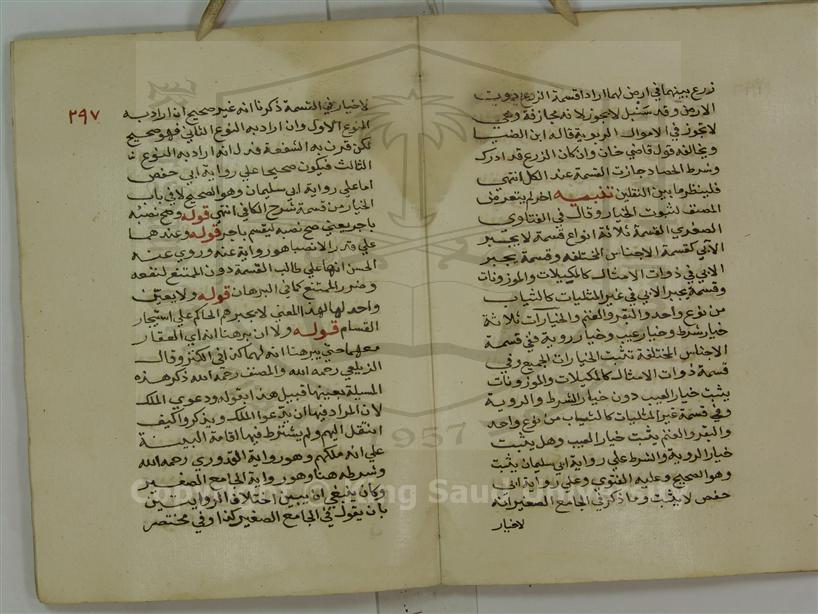 زرع بينهما في ارض لهما ارادا قسمة الزرع دون
الارض وقد سنبل لا يجوز لانه مجازفة وهي
لا تجوز في الاموال الربوية قاله ابن الضيا
ويخالفه قول قاضي خان وان كان الزرع قد ادرك
وشرط الحصاد جازت القسمة عند الكل انتهى
فلينظر ما بين النقلين تنبيه اخر لم يتعرض
المصنف لثبوت الخيار وقال في الفتاوى
الصغرى القسمة ثلاثة انواع قسمة لا يجبر
الآبي كقسمة الاجناس المختلفة وقسمة يجبر
الابي في ذوات الامثال كالمكيلات والموزونات
وقسمة يجبر الابي في غير المثليات كالثياب
من نوع واحد والبقر والغنم والخيارات ثلاثة
خيار شرط وخيار عيب وخيار روية ففي قسمة
الاجناس المختلفة تثبت الخيارات الجميع وفي
قسمة ذوات الامثال كالمكيلات والموزونات
يثبت خيار العيب دون خيار الشرط والروية
وفي قسمة غير المثليات كالثياب من نوع واحد
والبقر والغنم يثبت خيار العيب وهل يثبت
خيار الروية والشرط على رواية ابي سليمان يثبت
وهو الصحيح وعليه الفتوى وعلى رواية ابي
حفص لا يثبت وما ذكر في الجامع الصغير انه
لا خيار
٢٩٧
لا خيار في القسمة ذكرنا انه غير صحيح ان اراد به
النوع الاول وان اراد به النوع الثاني فهو صحيح
لكن قرن به الشفعة فدل انه اراد به النوع
الثالث فيكون صحيحا على رواية ابي حفص
اما على رواية ابي سليمان وهو الصحيح لا في باب
الخيار من قسمة شرح الكافي انتهى قوله وصح نصبه
باجر يعني صح نصبه ليقسم باجر قوله وعندهما
على قدر الانصبا هو رواية عنه وروى عنه
الحسن انها على طالب القسمة دون الممتنع لنفعه
وضرر الممتنع كما في البرهان قوله ولا يعين
واحد لها لهذا المعنى لا يجبرهم الحاكم على استيجار
القسام قوله ولا ان برهنا انه اي العقار
معهما حتى يبرهنا انه لهما كذا في الكنز وقال
الزيلعي رحمه الله والمصنف رحمه الله ذكر هذه
المسيلة بعينها قبيل هذا بقوله ودعوى الملك
لان المراد فيها ان يدعوا الملك ولم يذكروا كيف
انتقل اليهم ولم يشترط فيها اقامة البينة
على انه ملكهم وهو رواية القدوري رحمه الله
وشرطه هنا وهو رواية الجامع الصغير
وكان ينبغي ان يبين اختلاف الروايتين
بان يقول في الجامع الصغير كذا وفي مختصر
1957
Copyright © King Saud University